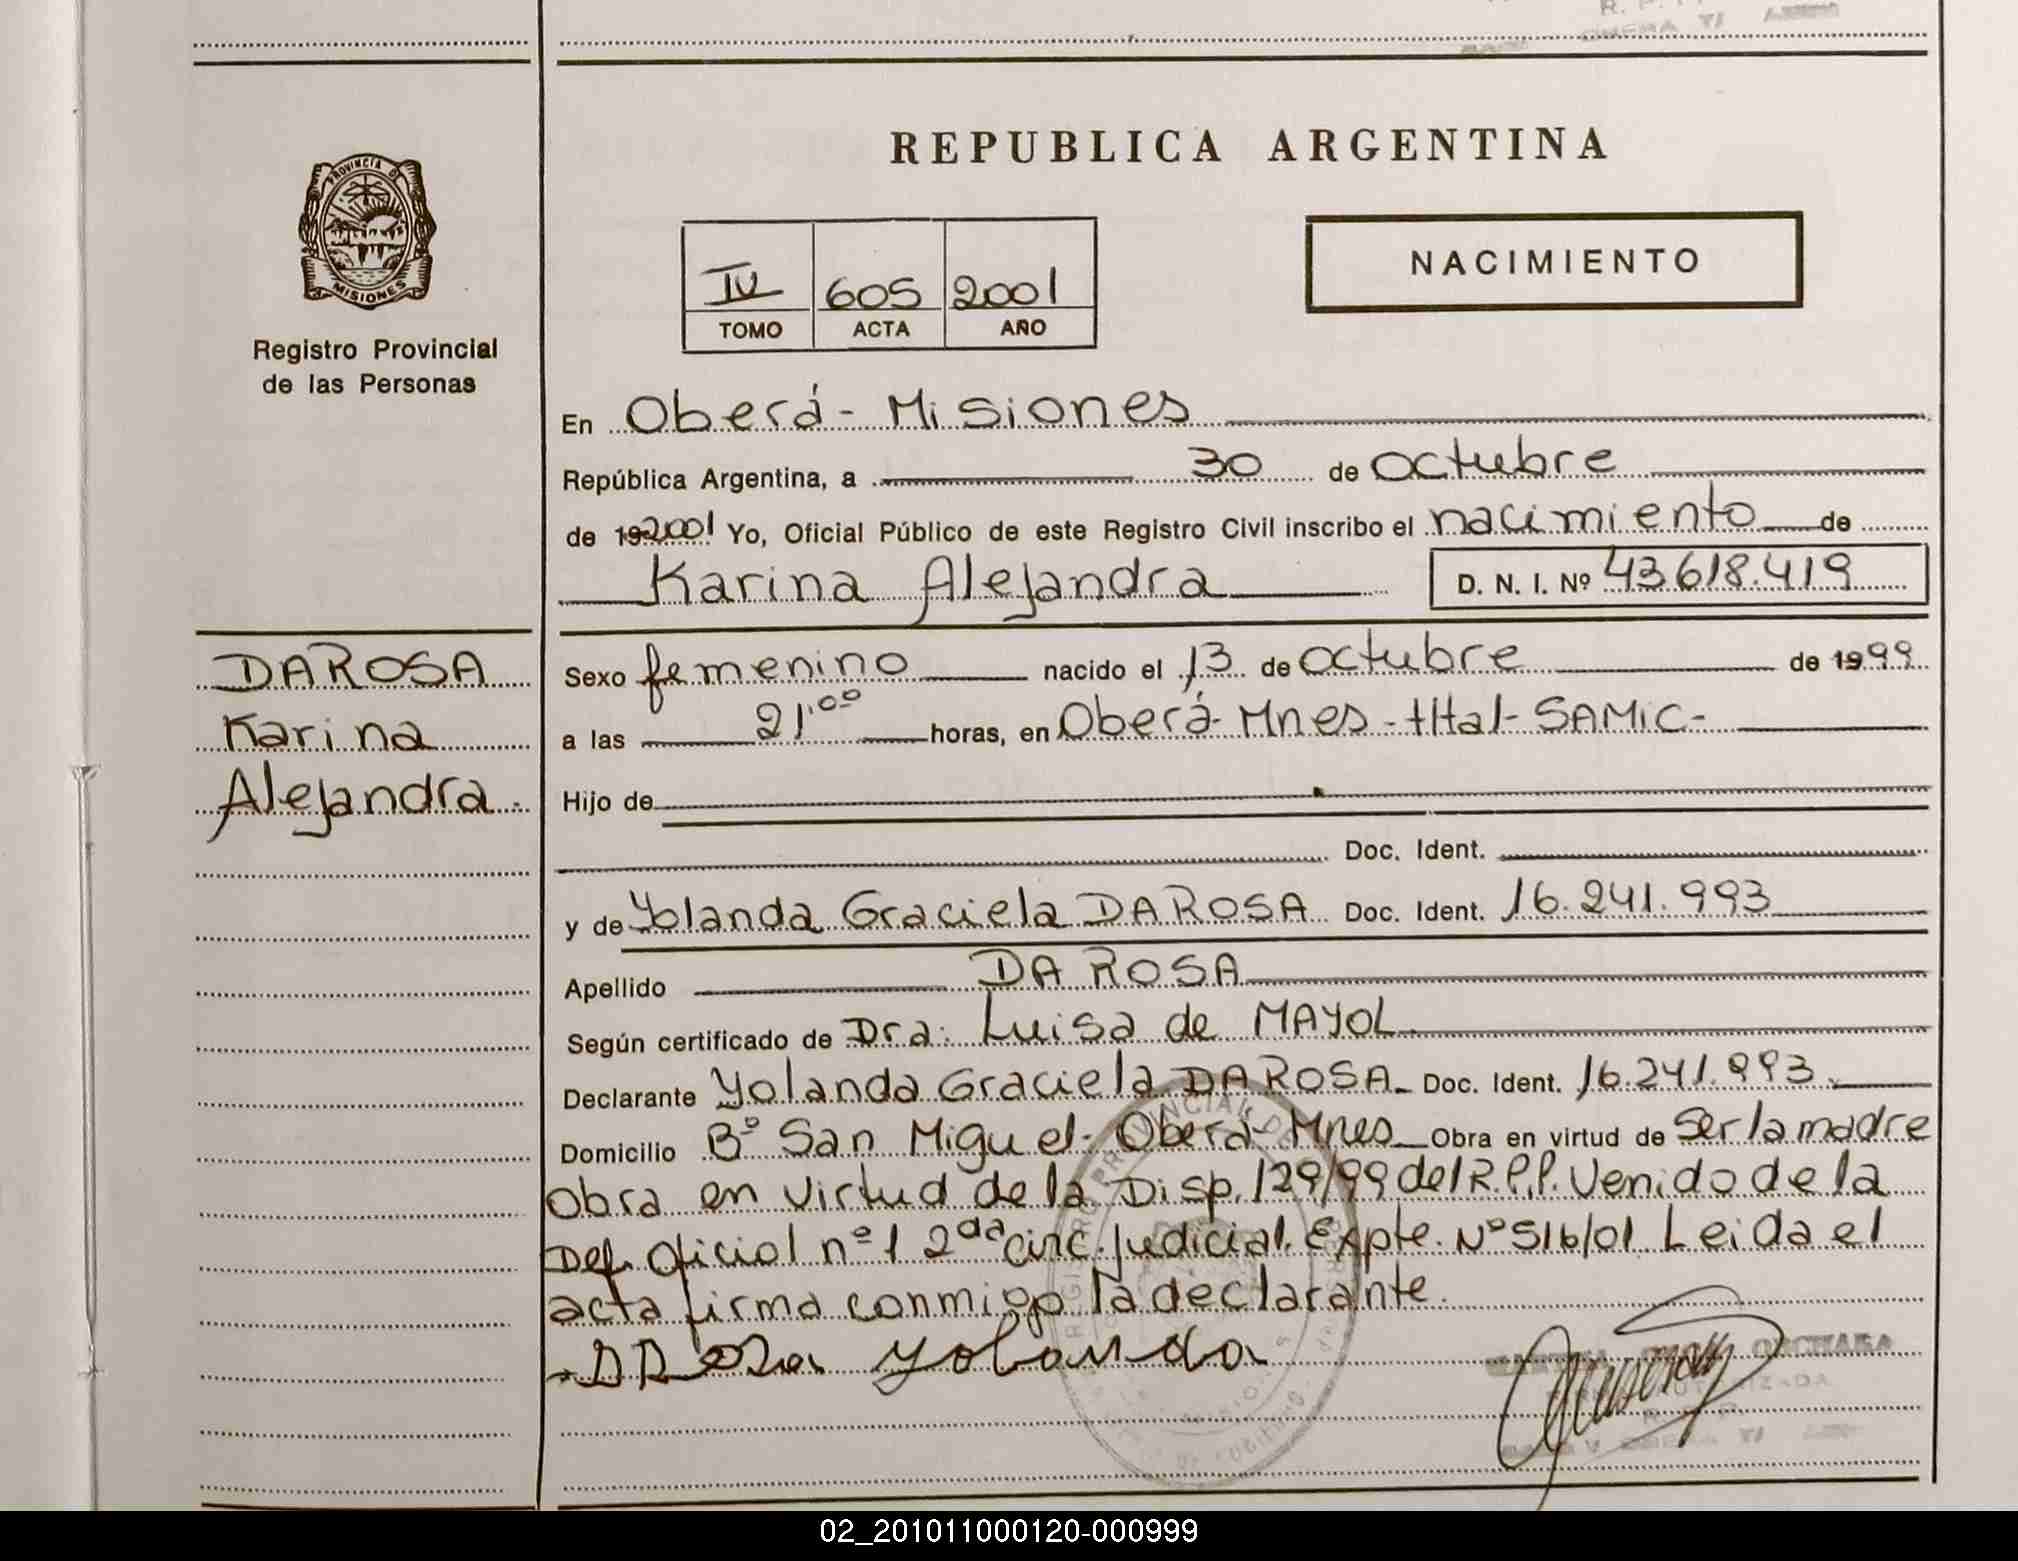 REPUBLICA ARGENTINA
PROVINCIA DE
MISIONES
Registro Provincial
de las Personas
IV 605 2001
TOMO ACTA AÑO
NACIMIENTO
En Oberá - Misiones
República Argentina, a 30 de octubre
de 192001 Yo, Oficial Público de este Registro Civil inscribo el nacimiento de
Karina Alejandra D. N. I. Nº 43.618.419
DA ROSA
Karina
Alejandra.
Sexo femenino nacido el 13 de octubre de 1999
a las 21.00 horas, en Oberá - Mnes - Htal - SAMIC -
Hijo de
Doc. Ident.
y de Yolanda Graciela DA ROSA Doc. Ident. 16.241.993
Apellido DA ROSA
Según certificado de Dra. Luisa de MAYOL
Declarante Yolanda Graciela DA ROSA Doc. Ident. 16.241.993
Domicilio Bº San Miguel - Oberá - Mnes Obra en virtud de ser la madre
Obra en virtud de la Disp. 129/99 del R.P.P. Venido de la
Def. Oficial nº 1 2da circ. Judicial. Expte. Nº 516/01 Leida el
acta firma conmigo la declarante.
Yolanda
02_201011000120-000999